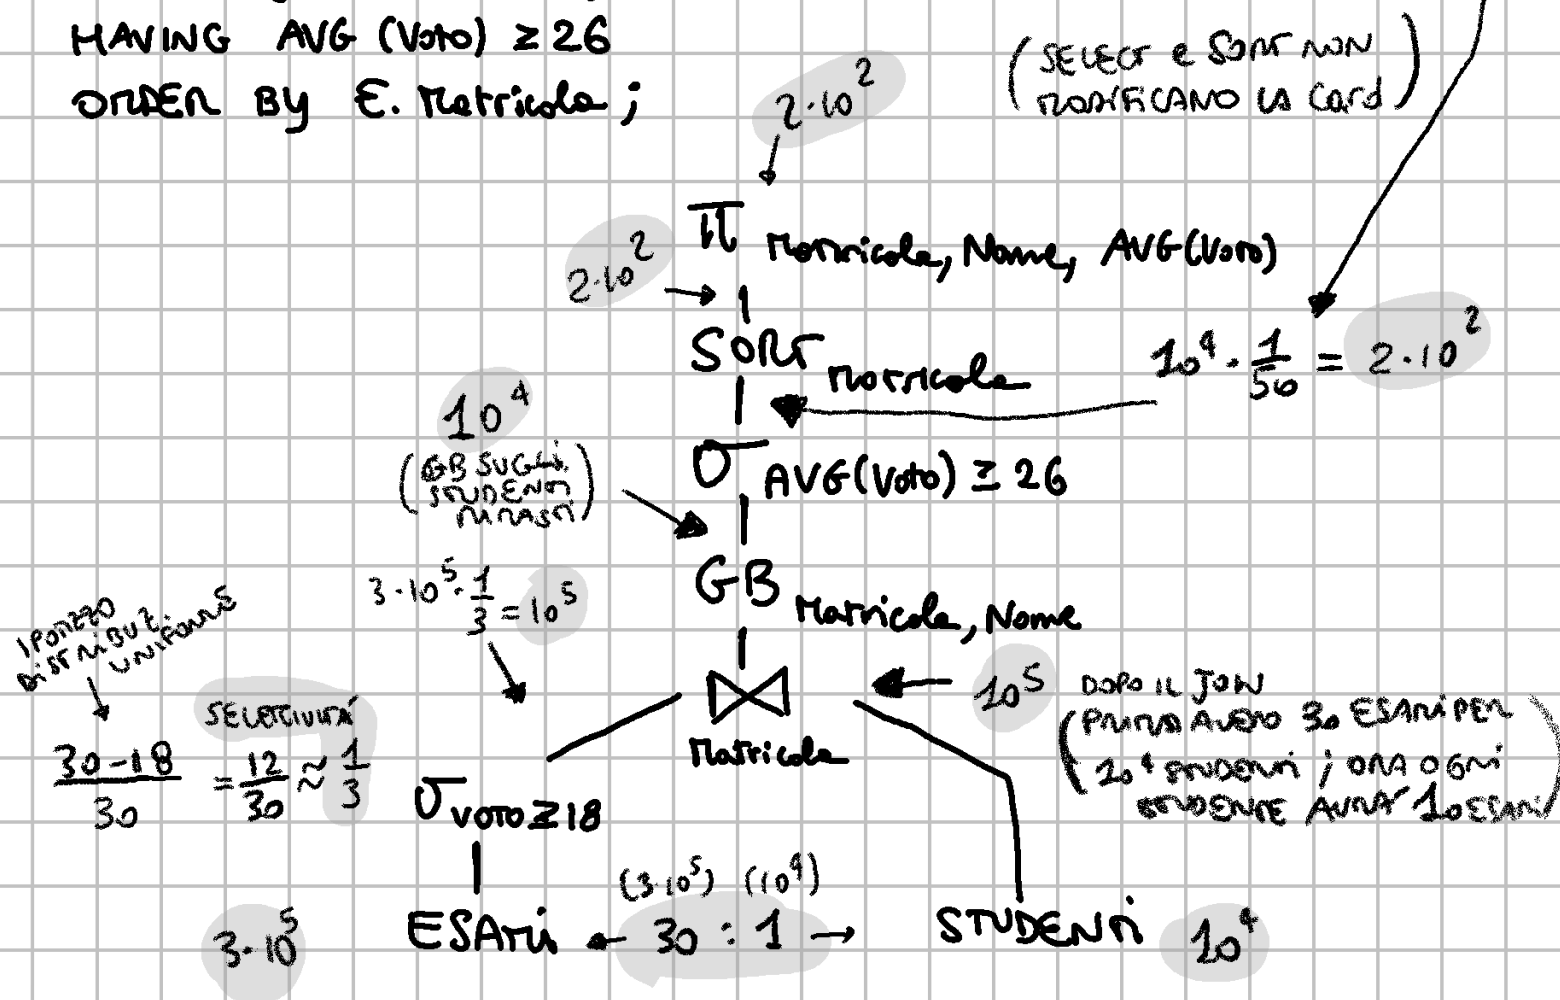 HAVING AVG (Voto) ≥ 26
ORDER BY E. Matricola ;
2·10²
( SELECT e SORT NON
MODIFICANO LA Card )
π Matricola, Nome, AVG(Voto)
2·10²
SORT Matricola
10⁴ · 1/50 = 2·10²
10⁴
( GB SUGLI
STUDENTI
RIMASTI )
σ AVG(Voto) ≥ 26
GB Matricola, Nome
3·10⁵ · 1/3 = 10⁵
IPOTIZZO
DISTRIBUZ.
UNIFORME
SELETTIVITÀ
30-18/30 = 12/30 ≈ 1/3
⋈ Matricola
10⁵ DOPO IL JOIN
( PRIMA AVEVO 30 ESAMI PER
10⁴ STUDENTI ; ORA OGNI
STUDENTE AVRA' 10 ESAMI )
σ VOTO ≥ 18
(3·10⁵) (10⁴)
3·10⁵ ESAMI ← 30 : 1 → STUDENTI 10⁴